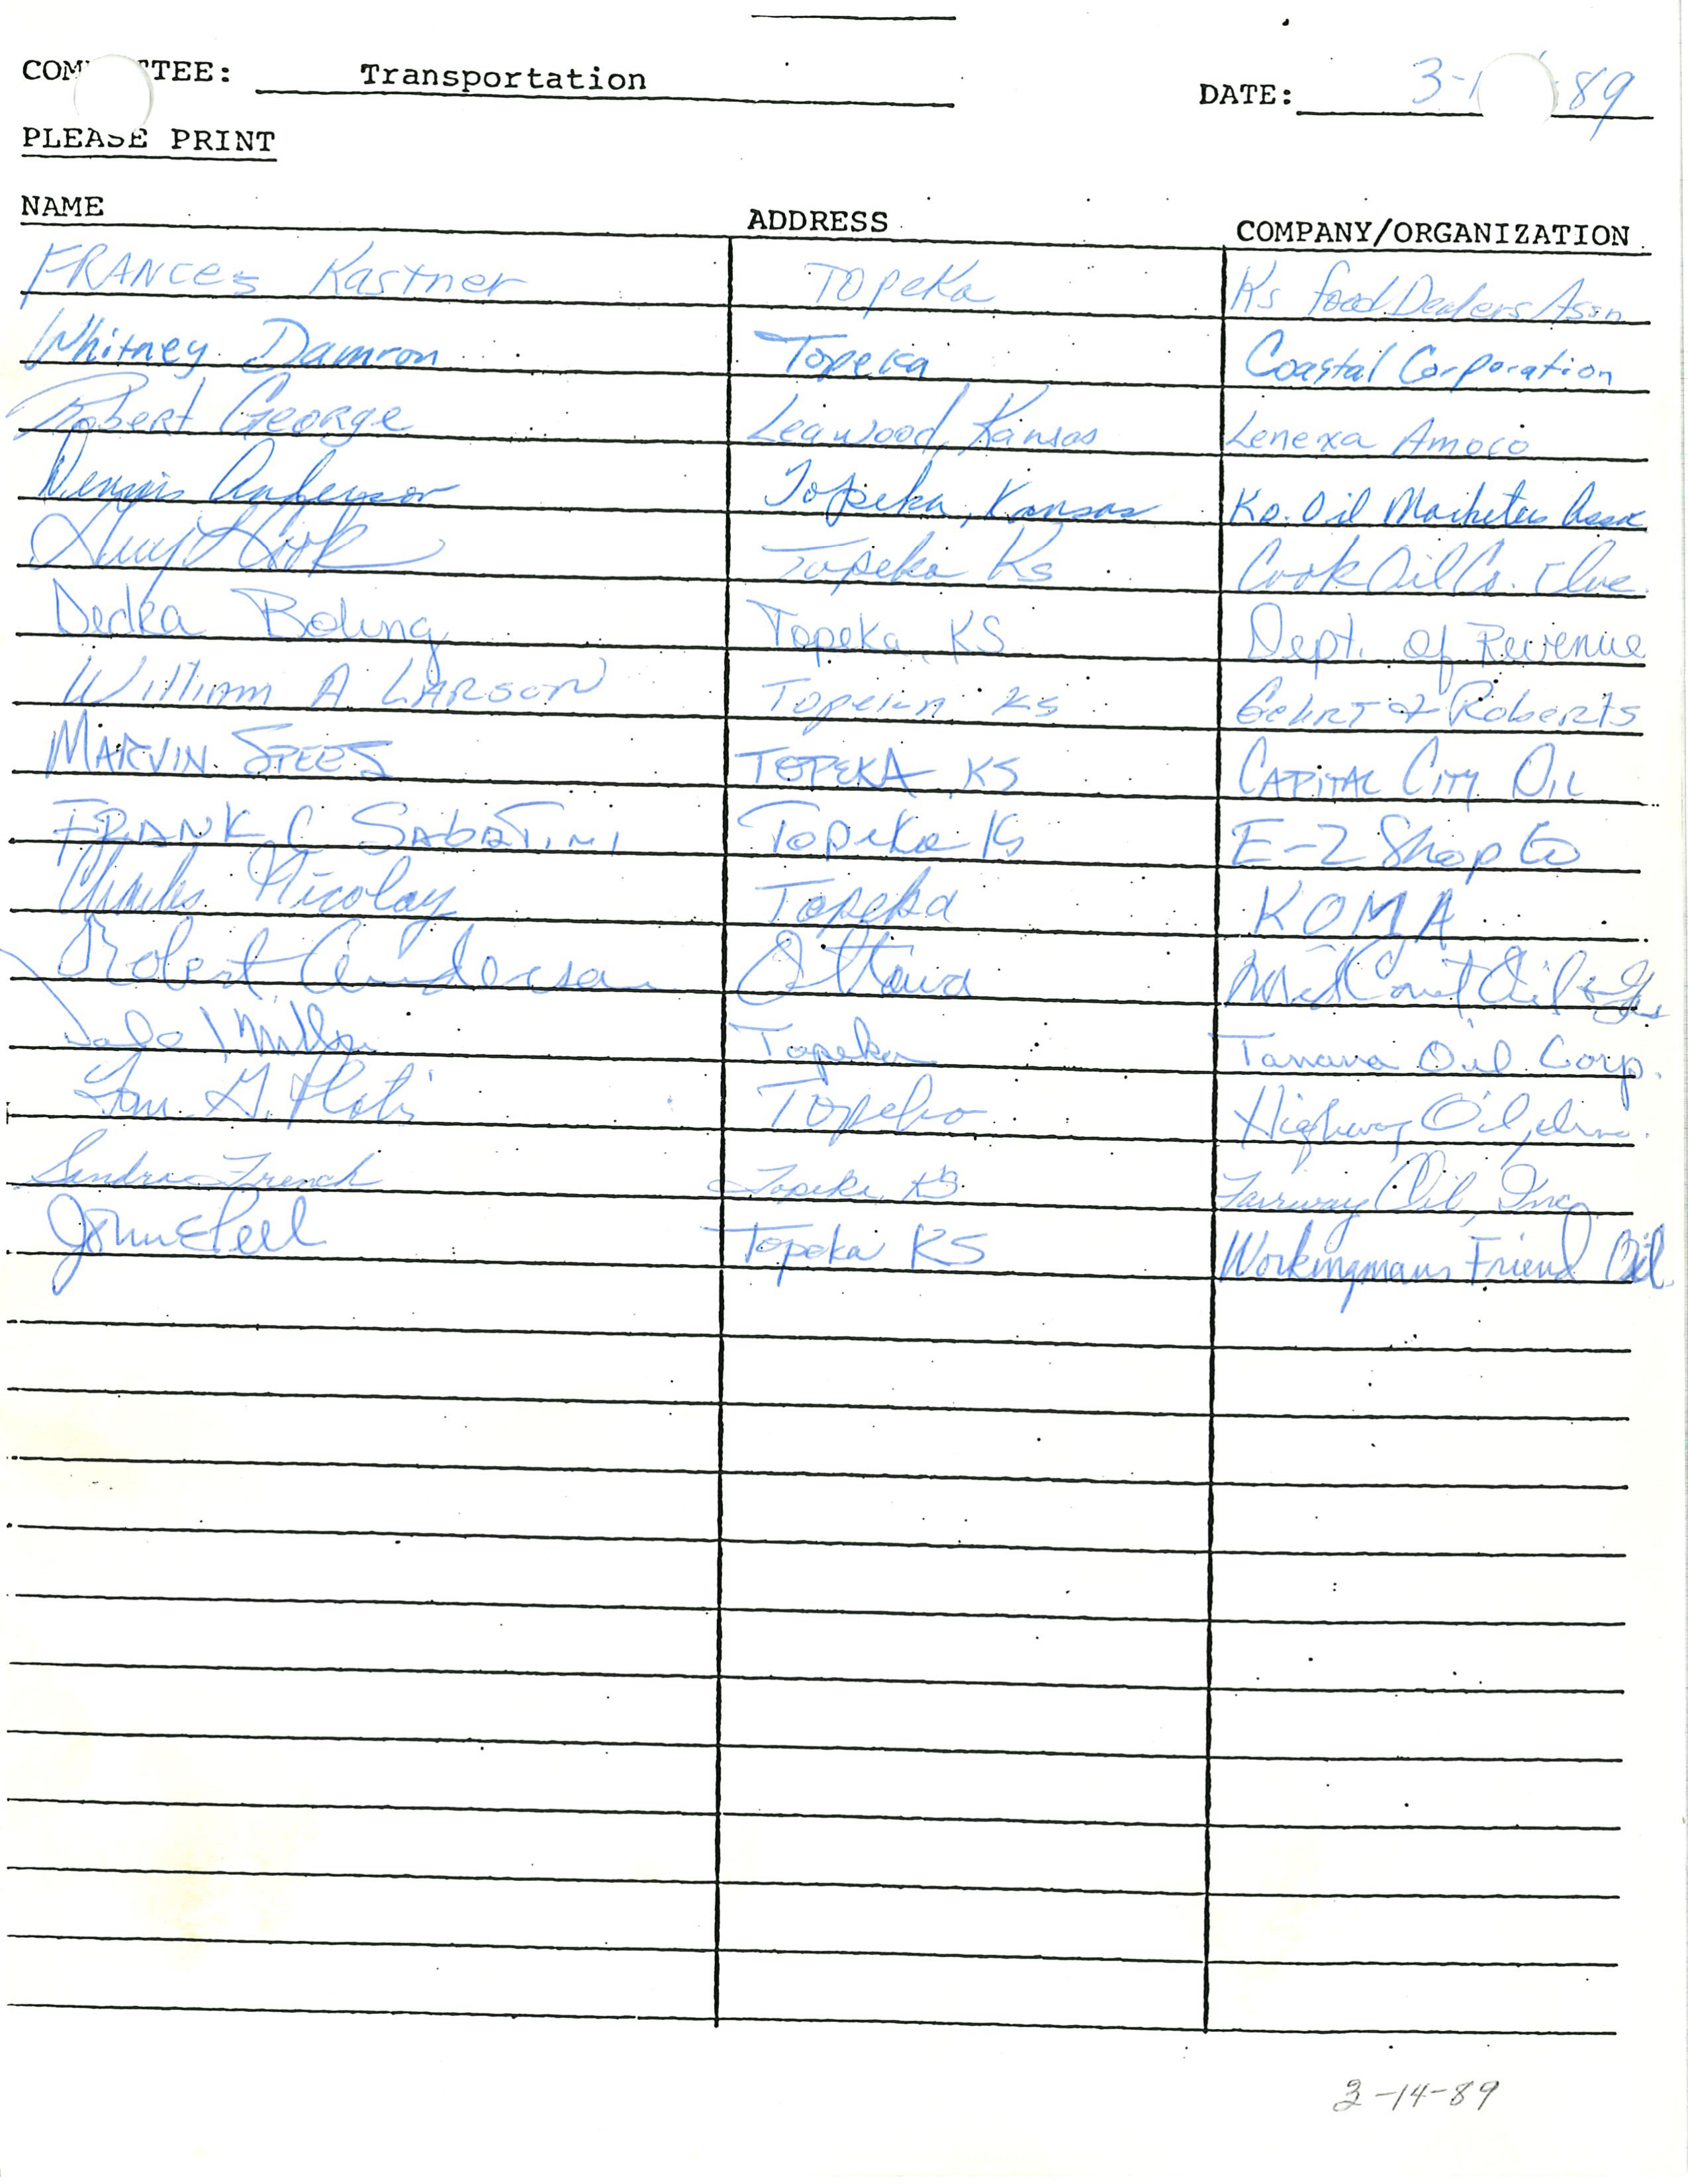 COM TEE: Transportation DATE: 3-1 -89
PLEASE PRINT
NAME ADDRESS COMPANY/ORGANIZATION
FRANCES Kastner TOPEKA Ks Food Dealers Assn
Whitney Damron Topeka Coastal Corporation
Robert George Leawood, Kansas Lenexa Amoco
Dennis Anderson Topeka, Kansas Ks. Oil Marketers Assoc
Cook Topeka Ks Cook Oil Co. Inc.
Dedra Topeka, KS Dept. of Revenue
William A. LARSON Topeka Ks Gehrt & Roberts
MARVIN SPEES TOPEKA, KS CAPITAL CITY OIL
FRANK C SABATINI Topeka Ks E-Z Shop Co
Charles Nicolay Topeka KOMA
Robert Anderson Ottawa Mid Cont Oil & Gas
Miller Topeka Oil Corp.
Topeka Highway Oil, Inc.
Sandra French Topeka, KS Fairway Oil, Inc.
John E Peel Topeka KS Workingmans Friend Oil
3-14-89